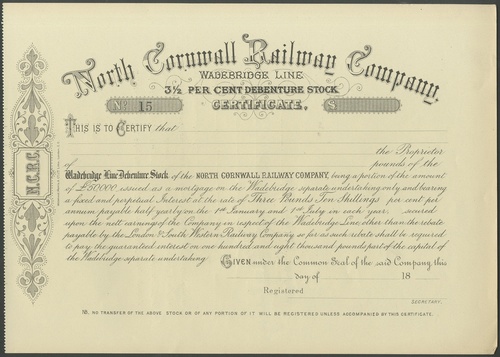 North Cornwall Railway Company,
WADEBRIDGE LINE
3½ PER CENT DEBENTURE STOCK
No 15 CERTIFICATE. S
THIS IS TO CERTIFY that
the Proprietor
of pounds of the
Wadebridge Line Debenture Stock of the NORTH CORNWALL RAILWAY COMPANY, being a portion of the amount
of £50000 issued as a mortgage on the Wadebridge separate undertaking only and bearing
a fixed and perpetual Interest at the rate of Three Pounds Ten Shillings per cent per
annum payable half yearly on the 1st January and 1st July in each year, secured
upon the nett earnings of the Company in respect of the Wadebridge Line other than the rebate
payable by the London & South Western Railway Company so far as such rebate shall be required
to pay the guaranteed interest on one hundred and eight thousand pounds part of the capital of
the Wadebridge separate undertaking.
GIVEN under the Common Seal of the said Company, this
day of 18
Registered
SECRETARY.
NB. NO TRANSFER OF THE ABOVE STOCK OR OF ANY PORTION OF IT WILL BE REGISTERED UNLESS ACCOMPANIED BY THIS CERTIFICATE.
N.C.R.C.